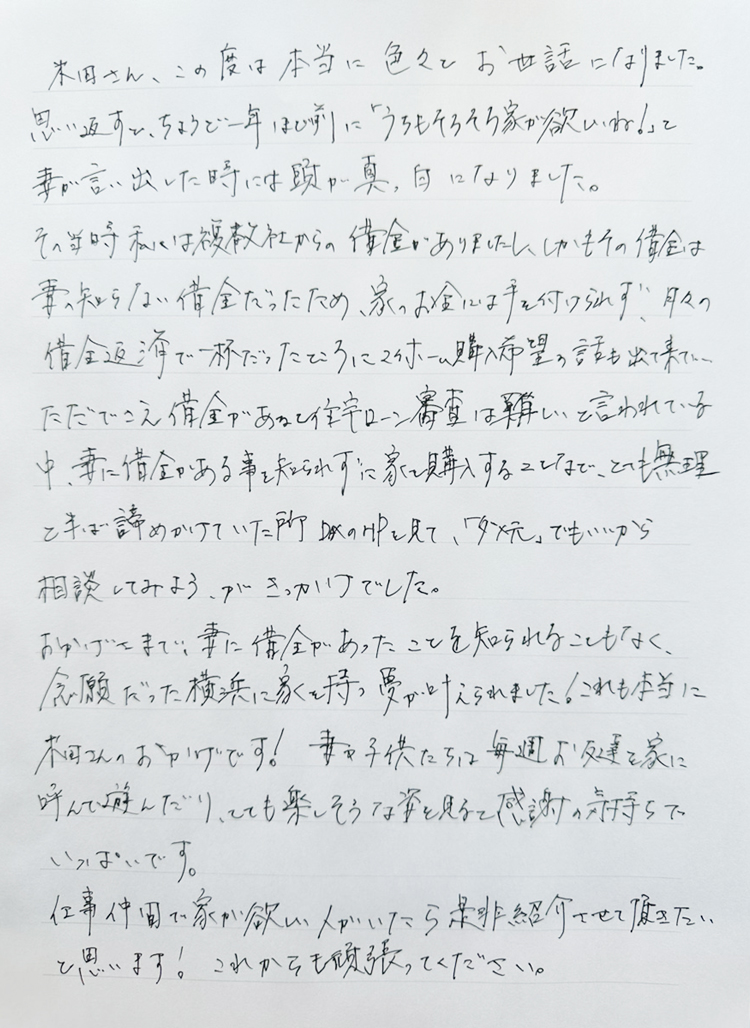 米田さん、この度は本当に色々と お世話になりました。
思い返すと、ちょうど一年ほど前に「うちもそろそろ家が欲しいね!」と
妻が言い出した時には頭が真っ白になりました。
その当時私には複数社からの借金がありましたし、しかもその借金は
妻の知らない借金だったため、家のお金には手を付けられず、月々の
借金返済で一杯だったところにマイホーム購入希望の話も出て来て…
ただでさえ借金があると住宅ローン審査は難しいと言われている
中、妻に借金がある事を知られずに家を購入することなど、とても無理
と半ば諦めかけていた所 のHPを見て、「ダメ元」でもいいから
相談してみよう、がきっかけでした。
おかげさまで、妻に借金があったことを知られることもなく、
念願だった横浜に家を持つ夢が叶えられました!これも本当に
米田さんのおかげです! 妻や子供たちは毎週お友達を家に
呼んで遊んだり、とても楽しそうな姿を見ると感謝の気持ちで
いっぱいです。
仕事仲間で家が欲しい人がいたら是非紹介させて頂きたい
と思います! これからも頑張ってください。